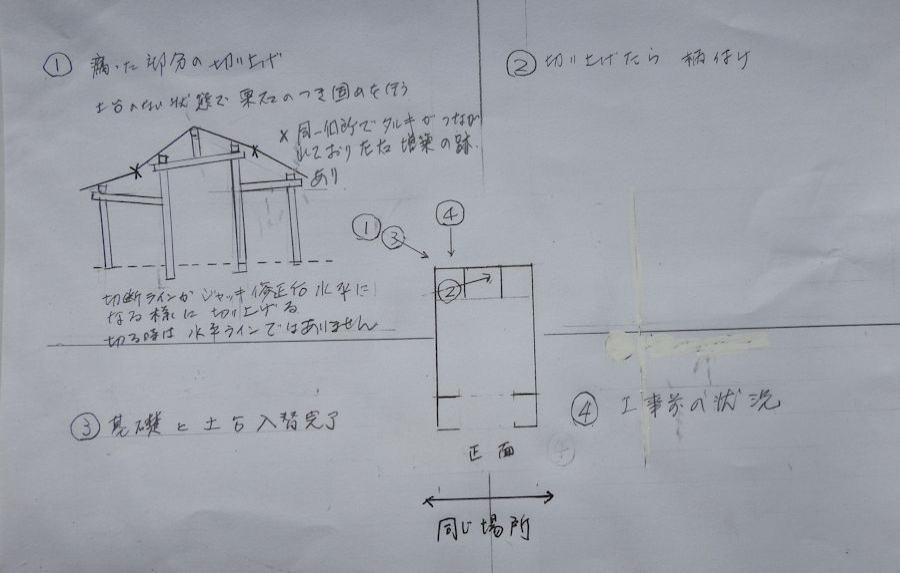 ① 腐った部分の切り上げ
土台のない状態で栗石のつき固めを行う
× 同一個所でタルキがつながれておりただ
増築の跡あり
切断ラインがジャッキ修正后水平に
なる様に切り上げる
切る時は水平ラインではありません
② 切り上げたら 柄付け
① ③ ④
②
③ 基礎と土台入替完了
④ 工事前の状況
正面
同じ場所